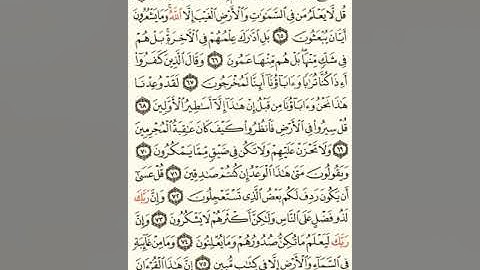 قُل لَّا يَعْلَمُ مَن فِي السَّمَٰوَٰتِ وَالْأَرْضِ الْغَيْبَ إِلَّا اللَّهُ وَمَا يَشْعُرُونَ
أَيَّانَ يُبْعَثُونَ ٦٥ بَلِ ادَّٰرَكَ عِلْمُهُمْ فِي الْآخِرَةِ بَلْ هُمْ
فِي شَكٍّ مِّنْهَا بَلْ هُم مِّنْهَا عَمُونَ ٦٦ وَقَالَ الَّذِينَ كَفَرُوا
أَءِذَا كُنَّا تُرَٰبًا وَءَابَاؤُنَا أَئِنَّا لَمُخْرَجُونَ ٦٧ لَقَدْ وُعِدْنَا
هَٰذَا نَحْنُ وَءَابَاؤُنَا مِن قَبْلُ إِنْ هَٰذَا إِلَّا أَسَٰطِيرُ الْأَوَّلِينَ ٦٨
قُلْ سِيرُوا فِي الْأَرْضِ فَانظُرُوا كَيْفَ كَانَ عَٰقِبَةُ الْمُجْرِمِينَ
٦٩ وَلَا تَحْزَنْ عَلَيْهِمْ وَلَا تَكُن فِي ضَيْقٍ مِّمَّا يَمْكُرُونَ ٧٠
وَيَقُولُونَ مَتَىٰ هَٰذَا الْوَعْدُ إِن كُنتُمْ صَٰدِقِينَ ٧١ قُلْ عَسَىٰ
أَن يَكُونَ رَدِفَ لَكُم بَعْضُ الَّذِي تَسْتَعْجِلُونَ ٧٢ وَإِنَّ رَبَّكَ
لَذُو فَضْلٍ عَلَى النَّاسِ وَلَٰكِنَّ أَكْثَرَهُمْ لَا يَشْكُرُونَ ٧٣ وَإِنَّ
رَبَّكَ لَيَعْلَمُ مَا تُكِنُّ صُدُورُهُمْ وَمَا يُعْلِنُونَ ٧٤ وَمَا مِنْ غَائِبَةٍ
فِي السَّمَاءِ وَالْأَرْضِ إِلَّا فِي كِتَٰبٍ مُّبِينٍ ٧٥ إِنَّ هَٰذَا الْقُرْءَانَ